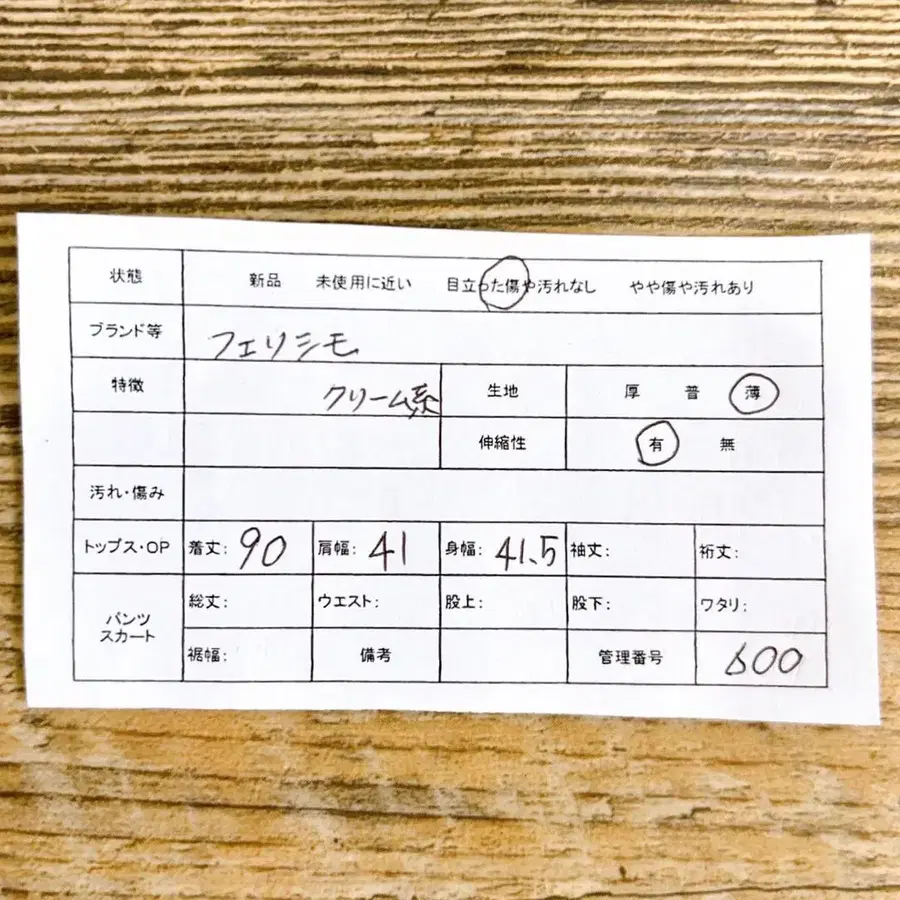 状態 新品 未使用に近い 目立った傷や汚れなし やや傷や汚れあり
ブランド等 フェリシモ
特徴 クリーム系 生地 厚 普 薄
伸縮性 有 無
汚れ・傷み
トップス・OP 着丈: 90 肩幅: 41 身幅: 41.5 袖丈: 裄丈:
パンツ スカート 総丈: ウエスト: 股上: 股下: ワタリ:
裾幅: 備考 管理番号